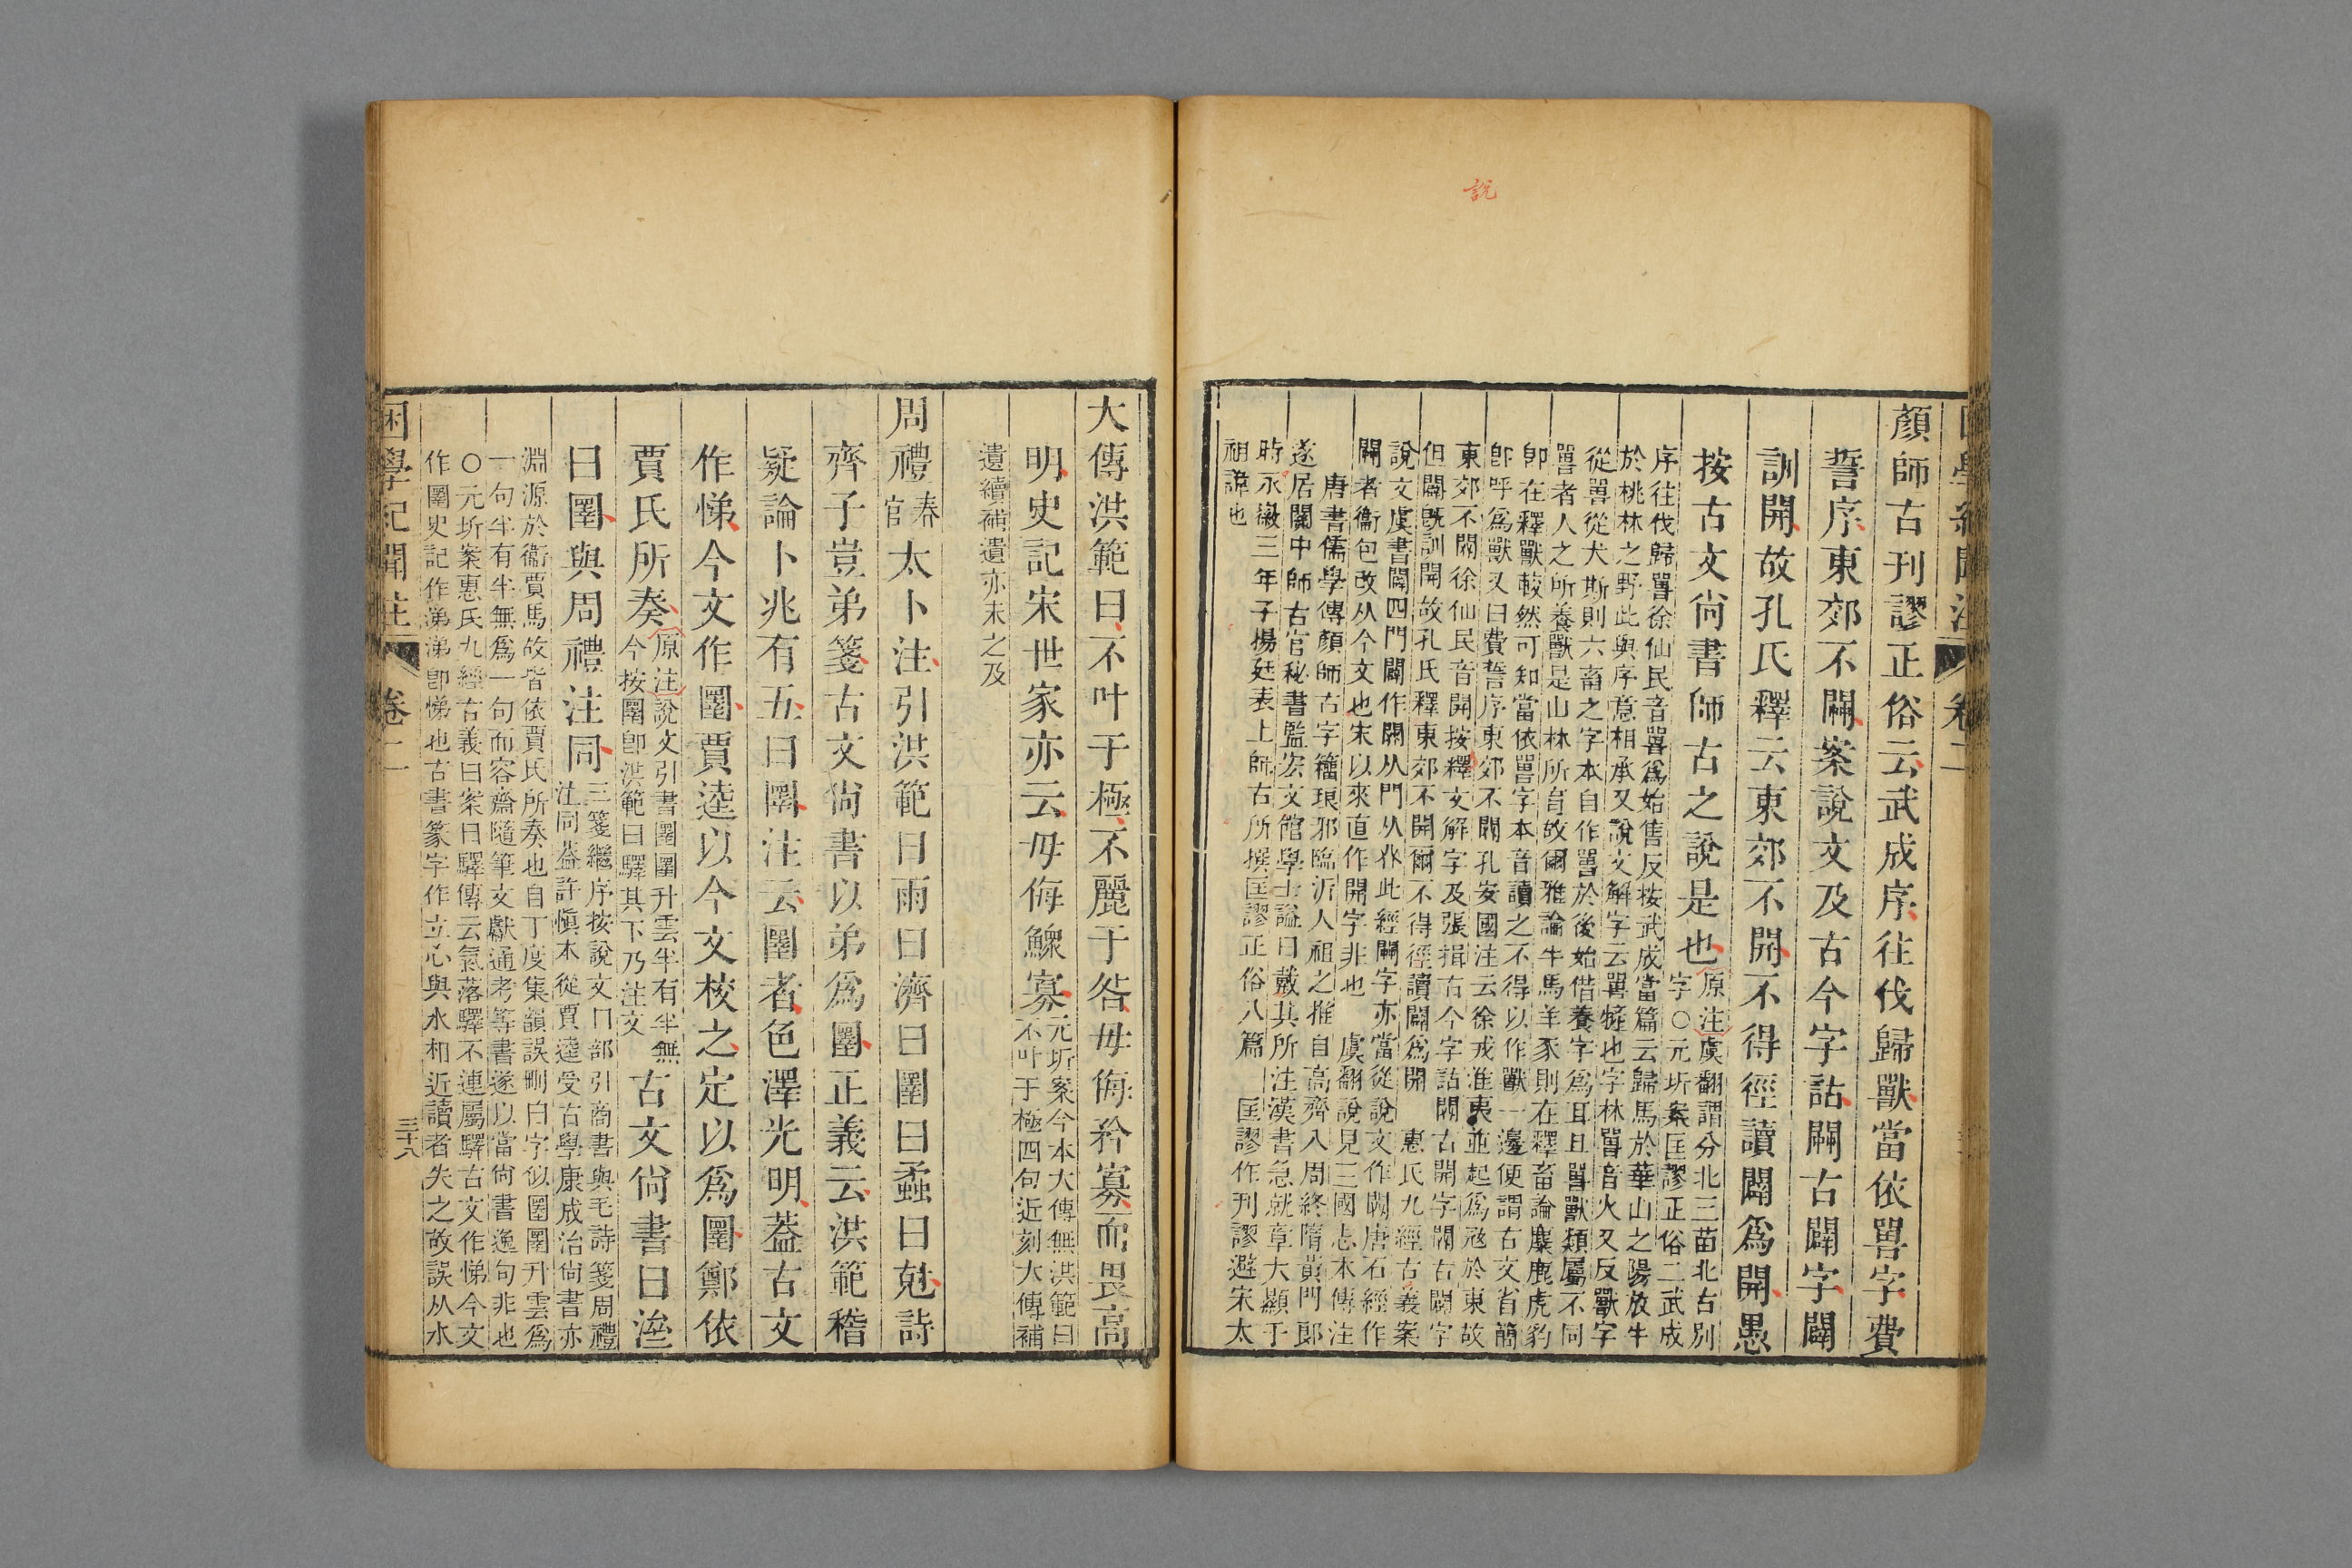 說
困學紀聞注 卷二
顏師古刊謬正俗云武成序往伐歸獸當依嘼字費
誓序東郊不闢案說文及古今字詁闢古闢字闢
訓開故孔氏釋云東郊不開不得徑讀闢爲開愚
按古文尚書師古之說是也
原注虞翻謂分北三苗北古別
字○元圻案匡謬正俗二武成
序往伐歸嘼徐仙民音嘼爲始售反按武成當篇云歸馬於華山之陽放牛
於桃林之野此與序意相承又說文解字云嘼㹌也字林嘼音火又反獸字
從嘼從犬斯則六畜之字本自作嘼於後始借養字爲耳且嘼獸類屬不同
嘼者人之所養獸是山林所育故爾雅論牛馬羊豕則在釋畜論麋鹿虎豹
卽在釋獸較然可知當依嘼字本音讀之不得以作獸一邊便謂古文省簡
卽呼爲獸又曰費誓序東郊不闢孔安國注云徐戎淮夷並起爲冦於東故
東郊不闢徐仙民音開按釋文解字及張揖古今字詁闢古開字闢古闢字
但闢旣訓開故孔氏釋東郊不開爾不得徑讀闢爲開 惠氏九經古義案
說文虞書闢四門闢作闢从門从𠬜此經闢字亦當從說文作闢唐石經作
開者衞包改从今文也宋以來直作開字非也 虞翻說見三國志本傳注
唐書儒學傳顏師古字籕琅邪臨沂人祖之推自高齊入周終隋黃門郞
遂居關中師古官秘書監宏文館學士謚曰戴其所注漢書急就章大顯于
時永徽三年子揚廷表上師古所撰匡謬正俗八篇 匡謬作刊謬避宋太
祖諱也
大傳洪範曰不叶于極不麗于咎毋侮矜寡而畏高
明史記宋世家亦云毋侮鰥寡
元圻案今本大傳無洪範曰
不叶于極四句近刻大傳補
遺續補遺亦未之及
周禮春官太卜注引洪範曰雨曰濟曰圛曰蟊曰尅詩
齊子豈弟箋古文尚書以弟爲圛正義云洪範稽
疑論卜兆有五曰圛注云圛者色澤光明葢古文
作悌今文作圛賈逵以今文校之定以爲圛鄭依
賈氏所奏
原注說文引書圛圛升雲半有半無
今按圛卽洪範曰驛其下乃注文
古文尚書曰涕
曰圛與周禮注同
三箋繼序按說文囗部引商書與毛詩箋周禮
注同葢許愼本從賈逵受古學康成治尚書亦
淵源於衞賈馬故皆依賈氏所奏也自丁度集韻誤刪曰字似圛圛升雲爲
一句半有半無爲一句而容齋隨筆文獻通考等書遂以當尚書逸句非也
○元圻案惠氏九經古義曰案曰驛傳云氣落驛不連屬驛古文作悌今文
作圛史記作涕涕卽悌也古書篆字作立心與水相近讀者失之故誤从水
困學紀聞注 卷二 三十八